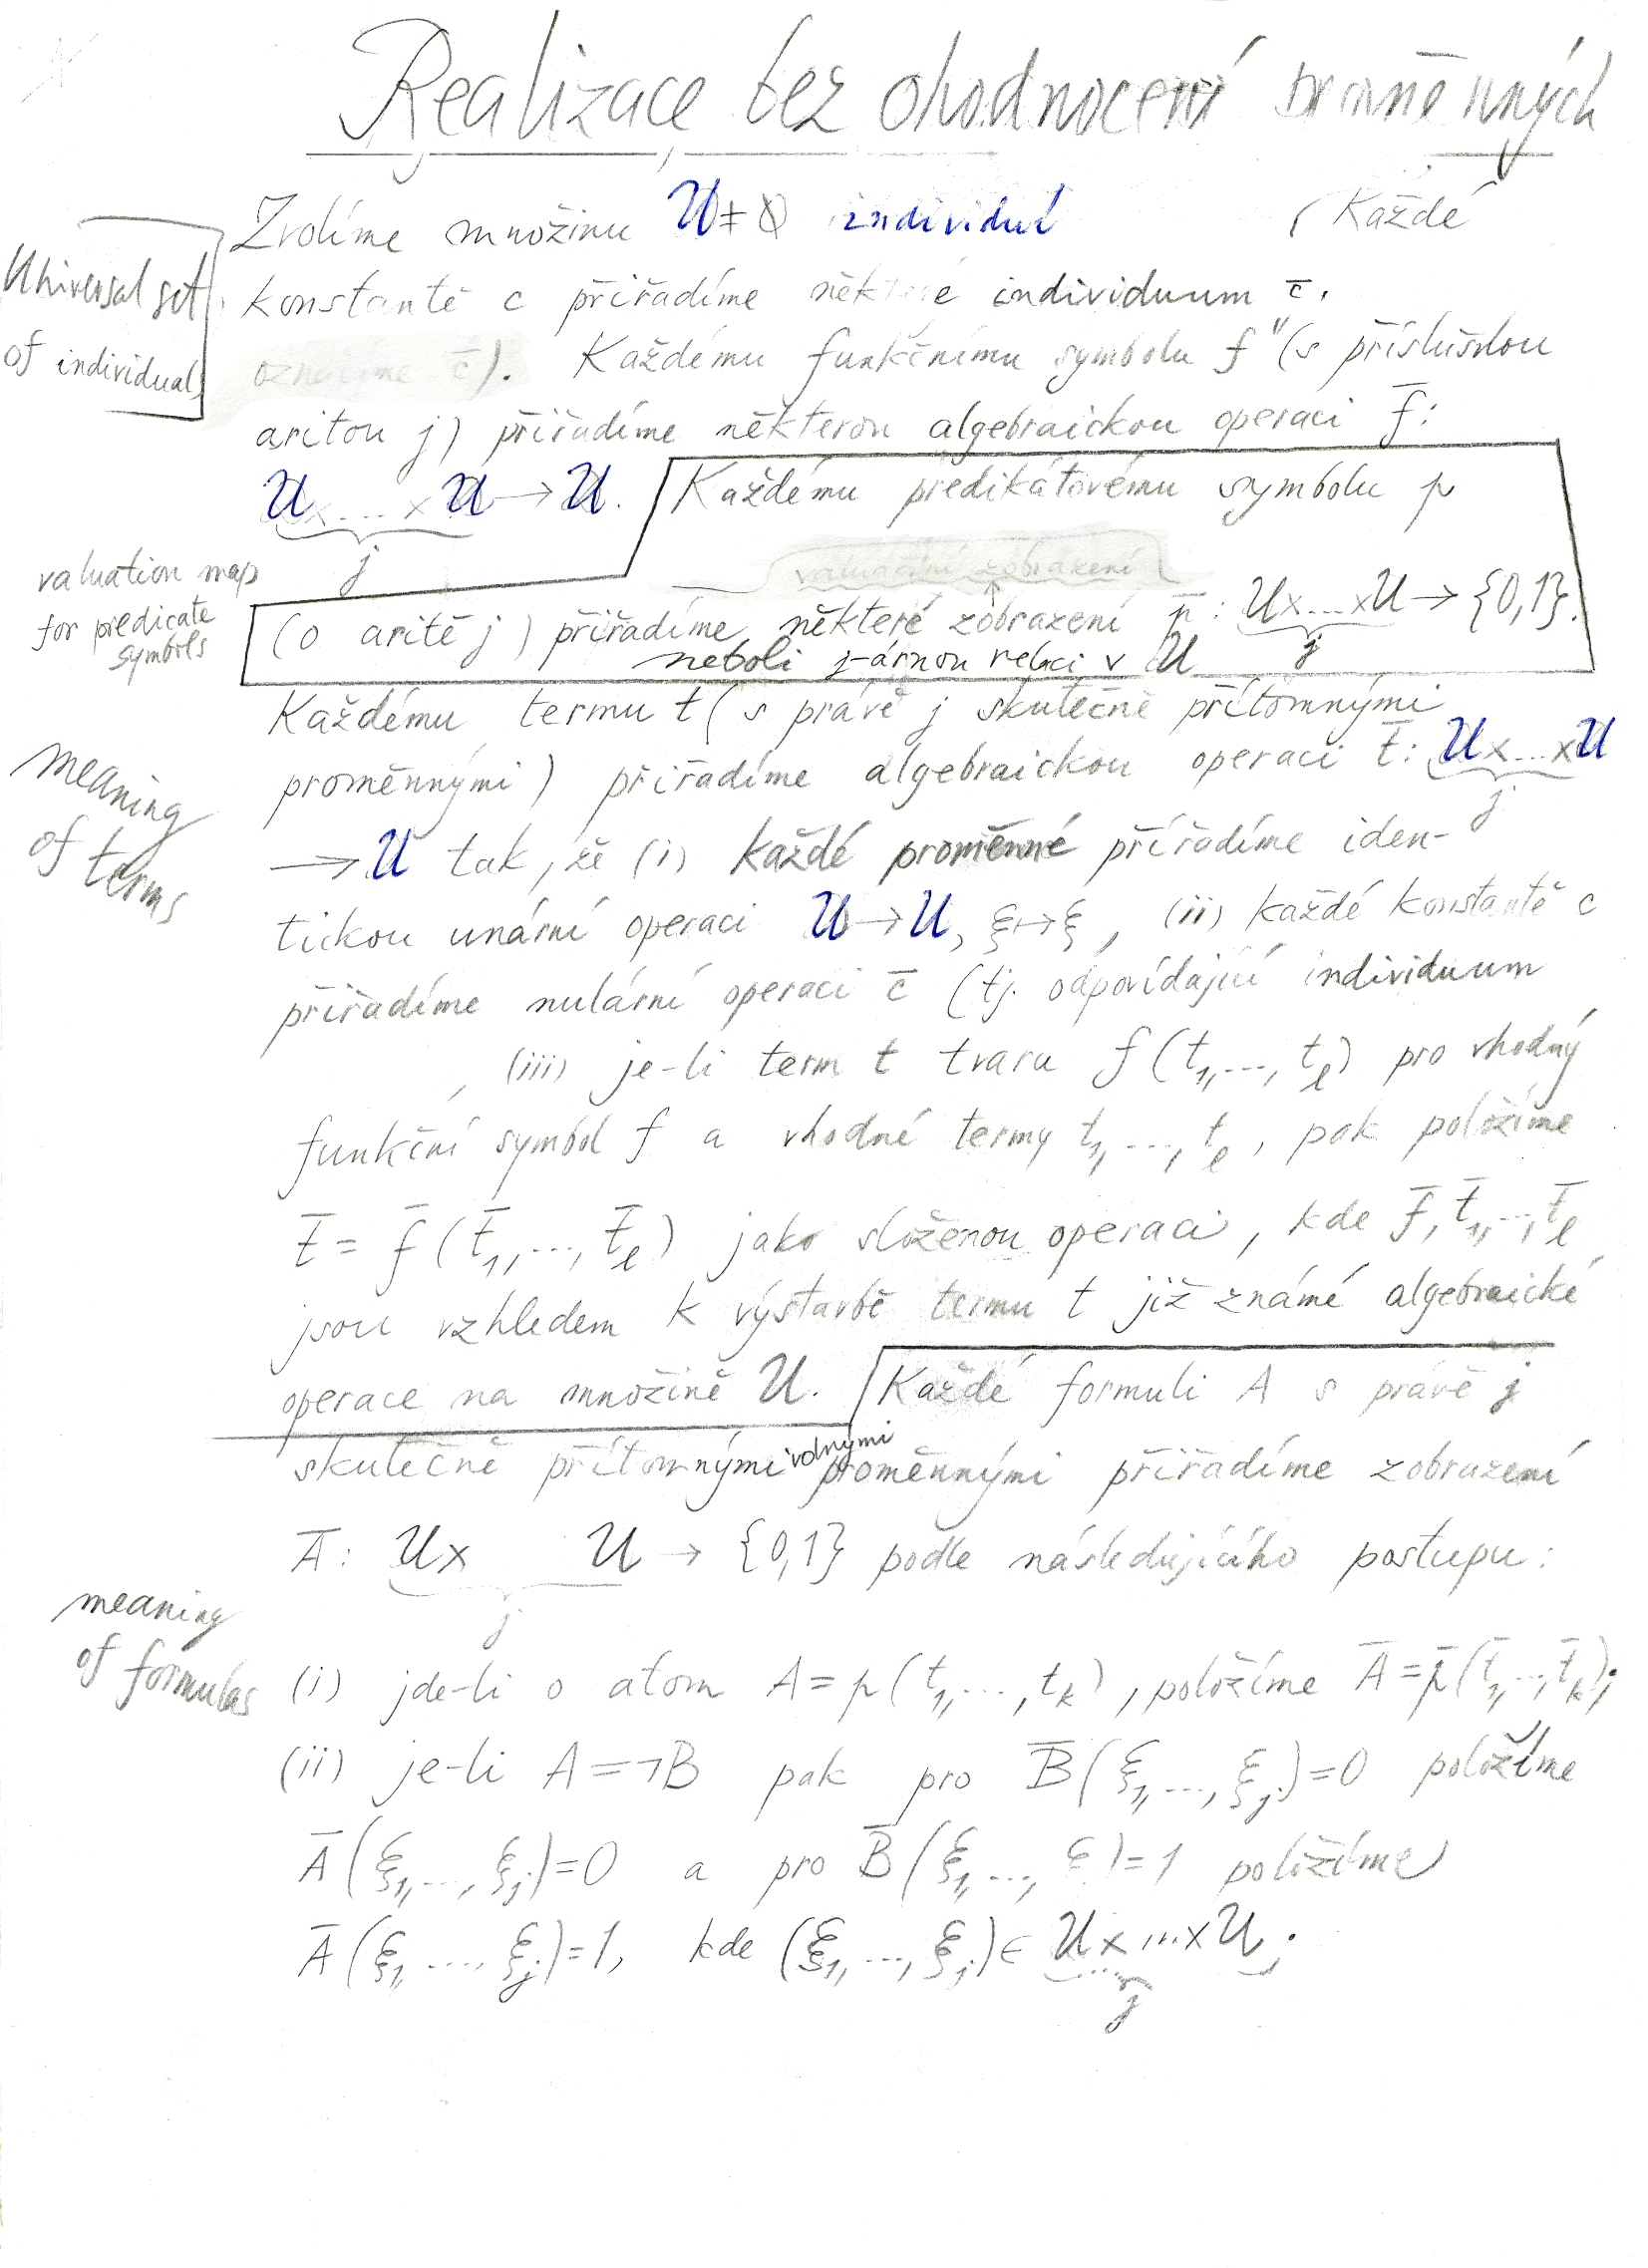 Realizace bez ohodnocení proměnných
Zvolíme množinu U ≠ ∅ individuí Každé
Universal set
of individuals
konstantě c přiřadíme některé individuum c̄.
označíme c̄). Každému funkčnímu symbolu f (s příslušnou
aritou j) přiřadíme některou algebraickou operaci f̄:
U×...×U → U. Každému predikátovému symbolu p
j
valuační zobrazení
valuation map
for predicate
symbols
(o aritě j) přiřadíme některé zobrazení p̄: U×...×U → {0,1}.
neboli j-árnou relaci v U
j
Každému termu t (s právě j skutečně přítomnými
meaning
of terms
proměnnými) přiřadíme algebraickou operaci t̄: U×...×U
j
→ U tak, že (i) každé proměnné přiřadíme iden-
tickou unární operaci U→U, ξ↦ξ, (ii) každé konstantě c
přiřadíme nulární operaci c̄ (tj. odpovídající individuum
, (iii) je-li term t tvaru f(t₁,...,tₗ) pro vhodný
funkční symbol f a vhodné termy t₁,...,tₗ, pak položíme
t̄ = f̄(t̄₁,...,t̄ₗ) jako složenou operaci, kde f̄, t̄₁,...,t̄ₗ
jsou vzhledem k výstavbě termu t již známé algebraické
operace na množině U. Každé formuli A s právě j
skutečně přítomnými volnými proměnnými přiřadíme zobrazení
Ā: U× U → {0,1} podle následujícího postupu:
j
meaning
of formulas
(i) jde-li o atom A = p(t₁,...,tₖ), položíme Ā = p̄(t̄₁,...,t̄ₖ);
(ii) je-li A = ¬B pak pro B̄(ξ₁,...,ξⱼ)=0 položíme
Ā(ξ₁,...,ξⱼ)=0 a pro B̄(ξ₁,..., ξ)=1 položíme
Ā(ξ₁,...,ξⱼ)=1, kde (ξ₁,...,ξⱼ)∈ U×...×U;
j